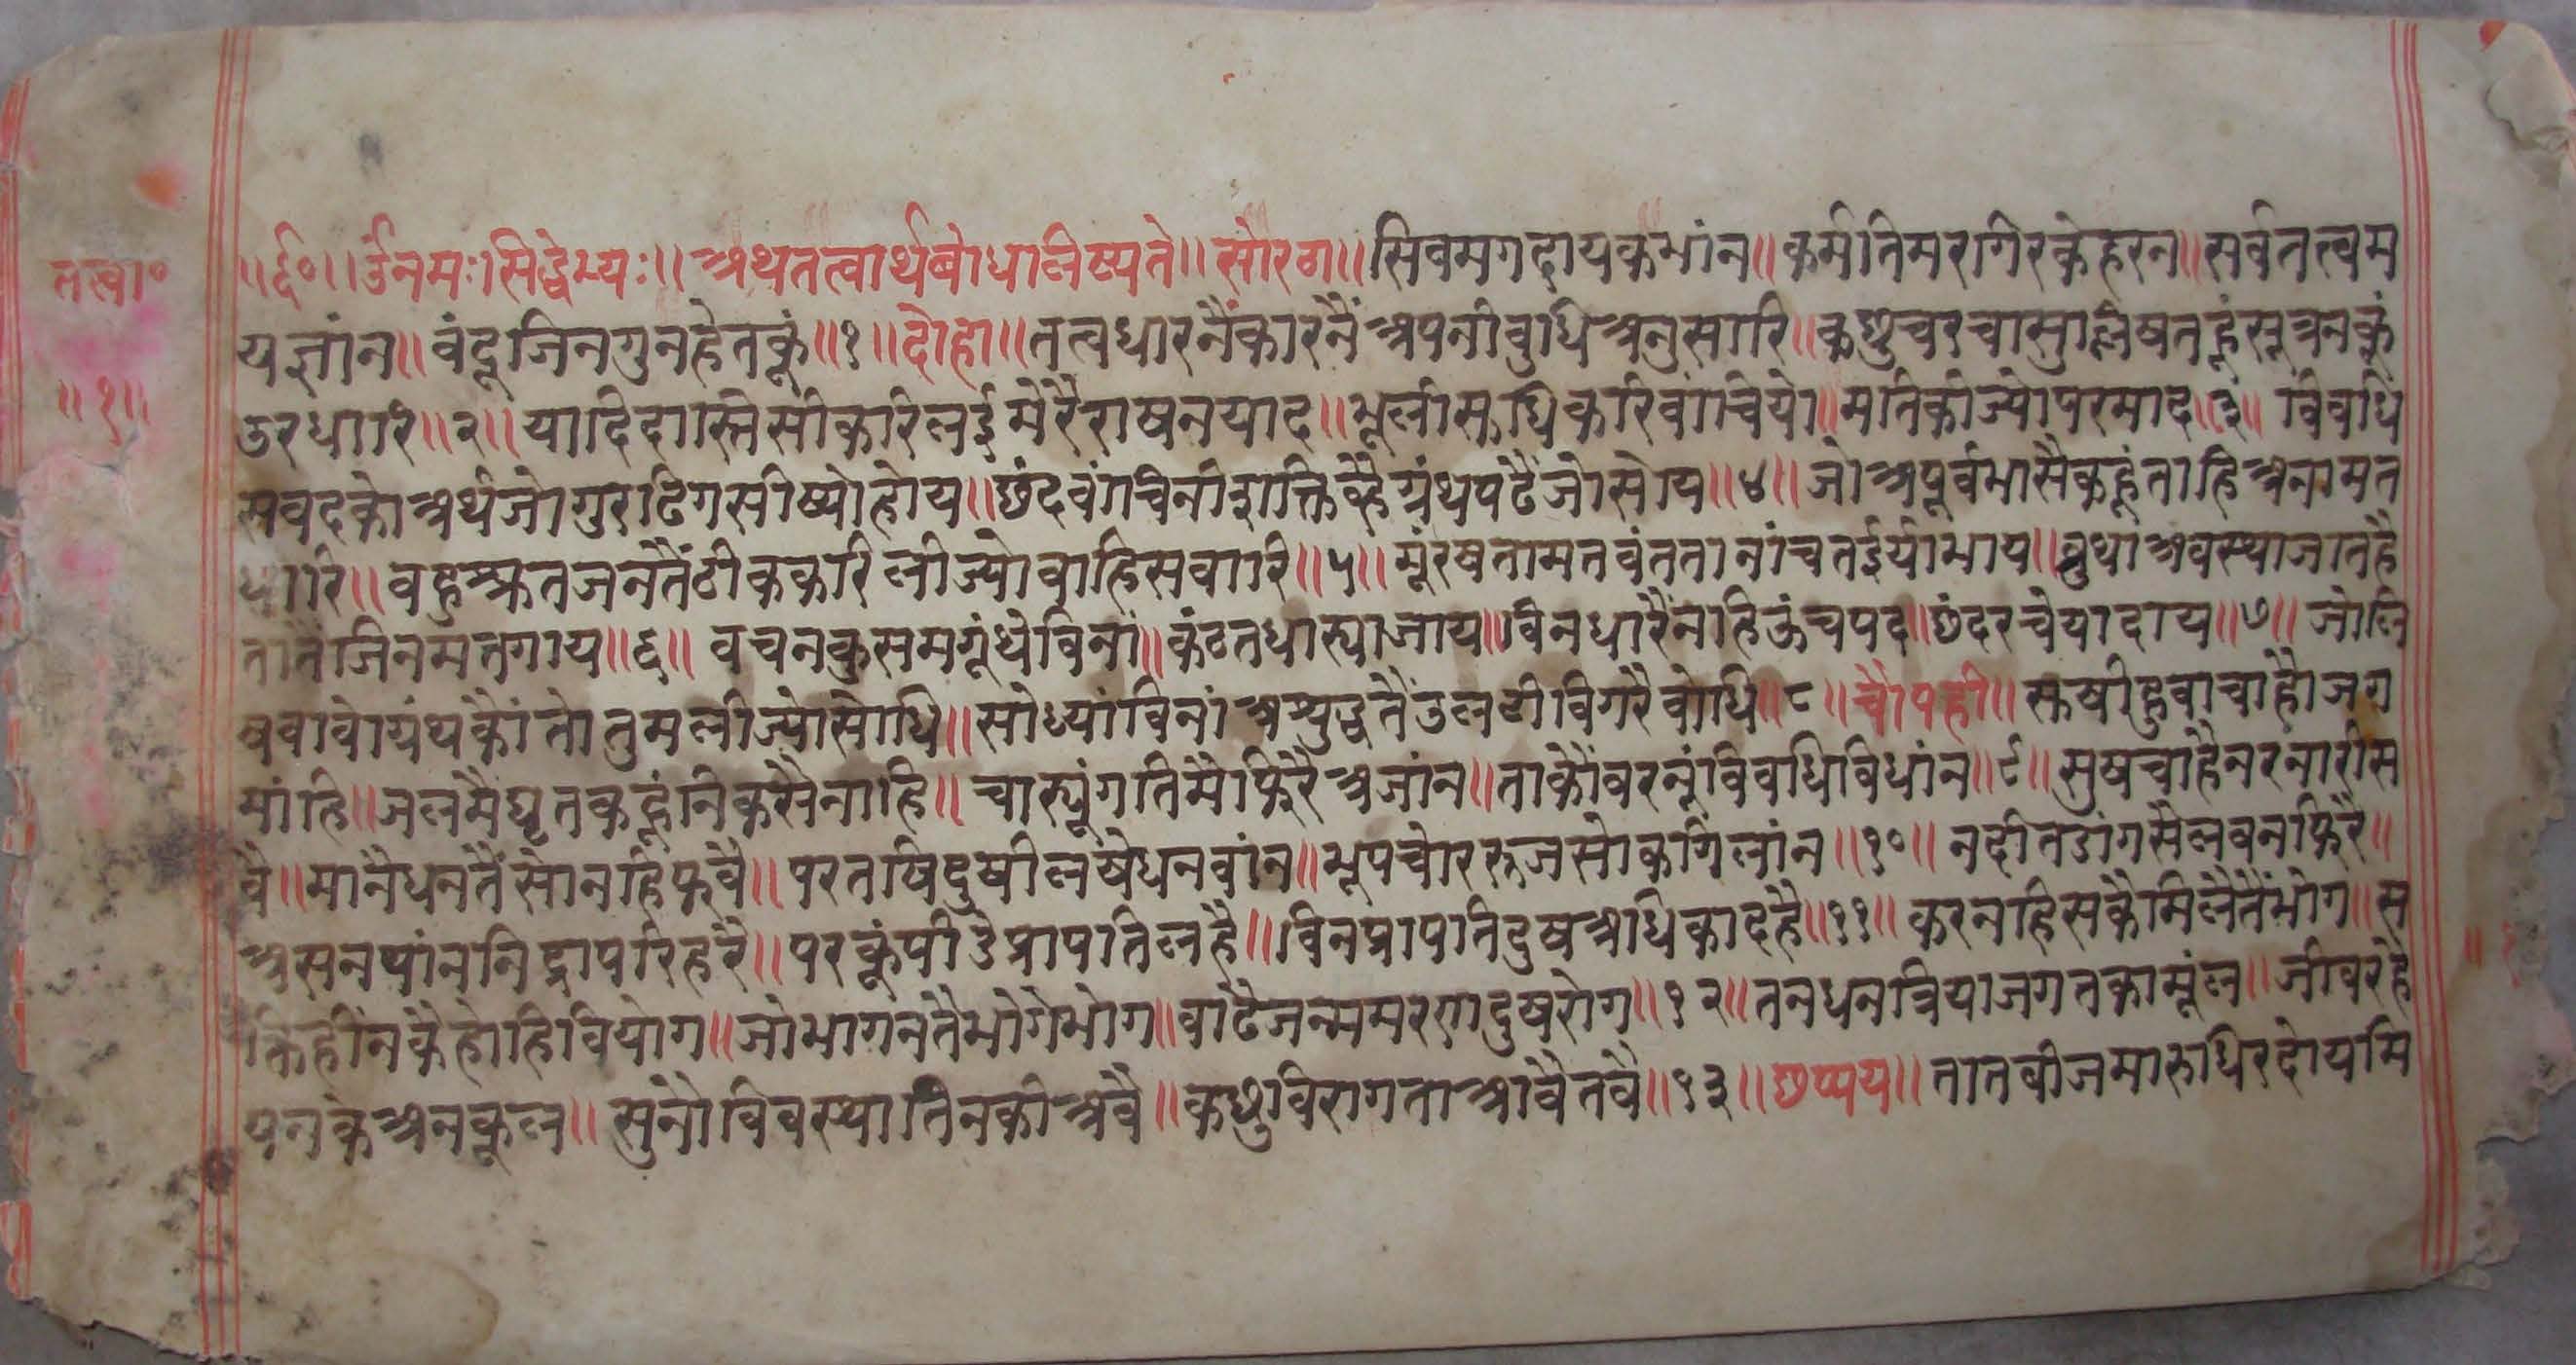 तत्वा०
॥१॥
॥६०॥ ॐनमः सिद्धेभ्यः॥ अथतत्वार्थबोधालिष्यते॥ सोरठा॥ सिवमगदायकभांन॥ कर्मतिमरगिरकेहरन॥ सर्वतत्वम
यज्ञांन॥ वंदूजिनगुनहेतकूं॥१॥ दोहा॥ तत्वधारनैंकारनैं अपनीवुधिअनुसारि॥ कछुचरचासुलिषतहूंसूत्रनकूं
उरधारि॥२॥ यादिदास्तिसीकरिलईमेरैराषनयाद॥ भूलीसुधिकरिवांचियो॥ मतिकीज्योपरमाद॥३॥ विवधि
सवदकोअर्थजोगुरढिगसीष्योहोय॥ छंदवांचनीशक्तिव्हैग्रंथपढैजोसोय॥४॥ जोअपूर्वभासैकहूंताहिअनामत
धारि॥ वहुश्रुतजनतैंठीककरिलीज्योवाहिसवारि॥५॥ मूरषतामतवंततानांचतईर्याभाय॥ व्रथाअवस्थाजातहै
तातैंजिनमतगाय॥६॥ वचनकुसमगूंथेविनां॥ कंठतधार्‍याजाय॥ विनधारैंनाहिऊंचपद॥ छंदरचेयादाय॥७॥ जोलि
षवावोग्रंथकौंतोतुमलीज्योसोधि॥ सोध्यांविनांअश्युद्धतैंउलटीविगरैवोधि॥८॥ चौपही॥ सुषीहुवाचाहौजग
मांहि॥ जलमैघृतकहूंनिकसैनाहि॥ चार्‍यूंगतिमैफिरैअजांन॥ ताकौंवरनूंविवधिविधांन॥९॥ सुषचाहैनरनारीस
वै॥ मानैधनतैंसोनहिफवै॥ परतषिदुषीलषैधनवांन॥ भूपचोररुजसोकगिलांन॥१०॥ नदीतडागसैलवनफिरै॥
असनपांननिद्रापरिहरै॥ परकूंपीडैप्रापतिलहै॥ विनप्रापतिदुषअधिकादहै॥११॥ करनहिसकैमिलैतैंभोग॥ स
क्तिहीनकैहोहिवियोग॥ जोभागनतैभोगेभोग॥ वाढैजन्ममरणदुषरोग॥१२॥ तनधनत्रियाजगतकामूंल॥ जीवरहै
पनकेअनकूल॥ सुनौविवस्थातिनकीअवै॥ कछुविरागताआवैतवै॥१३॥ छप्पय॥ तातवीजमारुधिरदोयमि